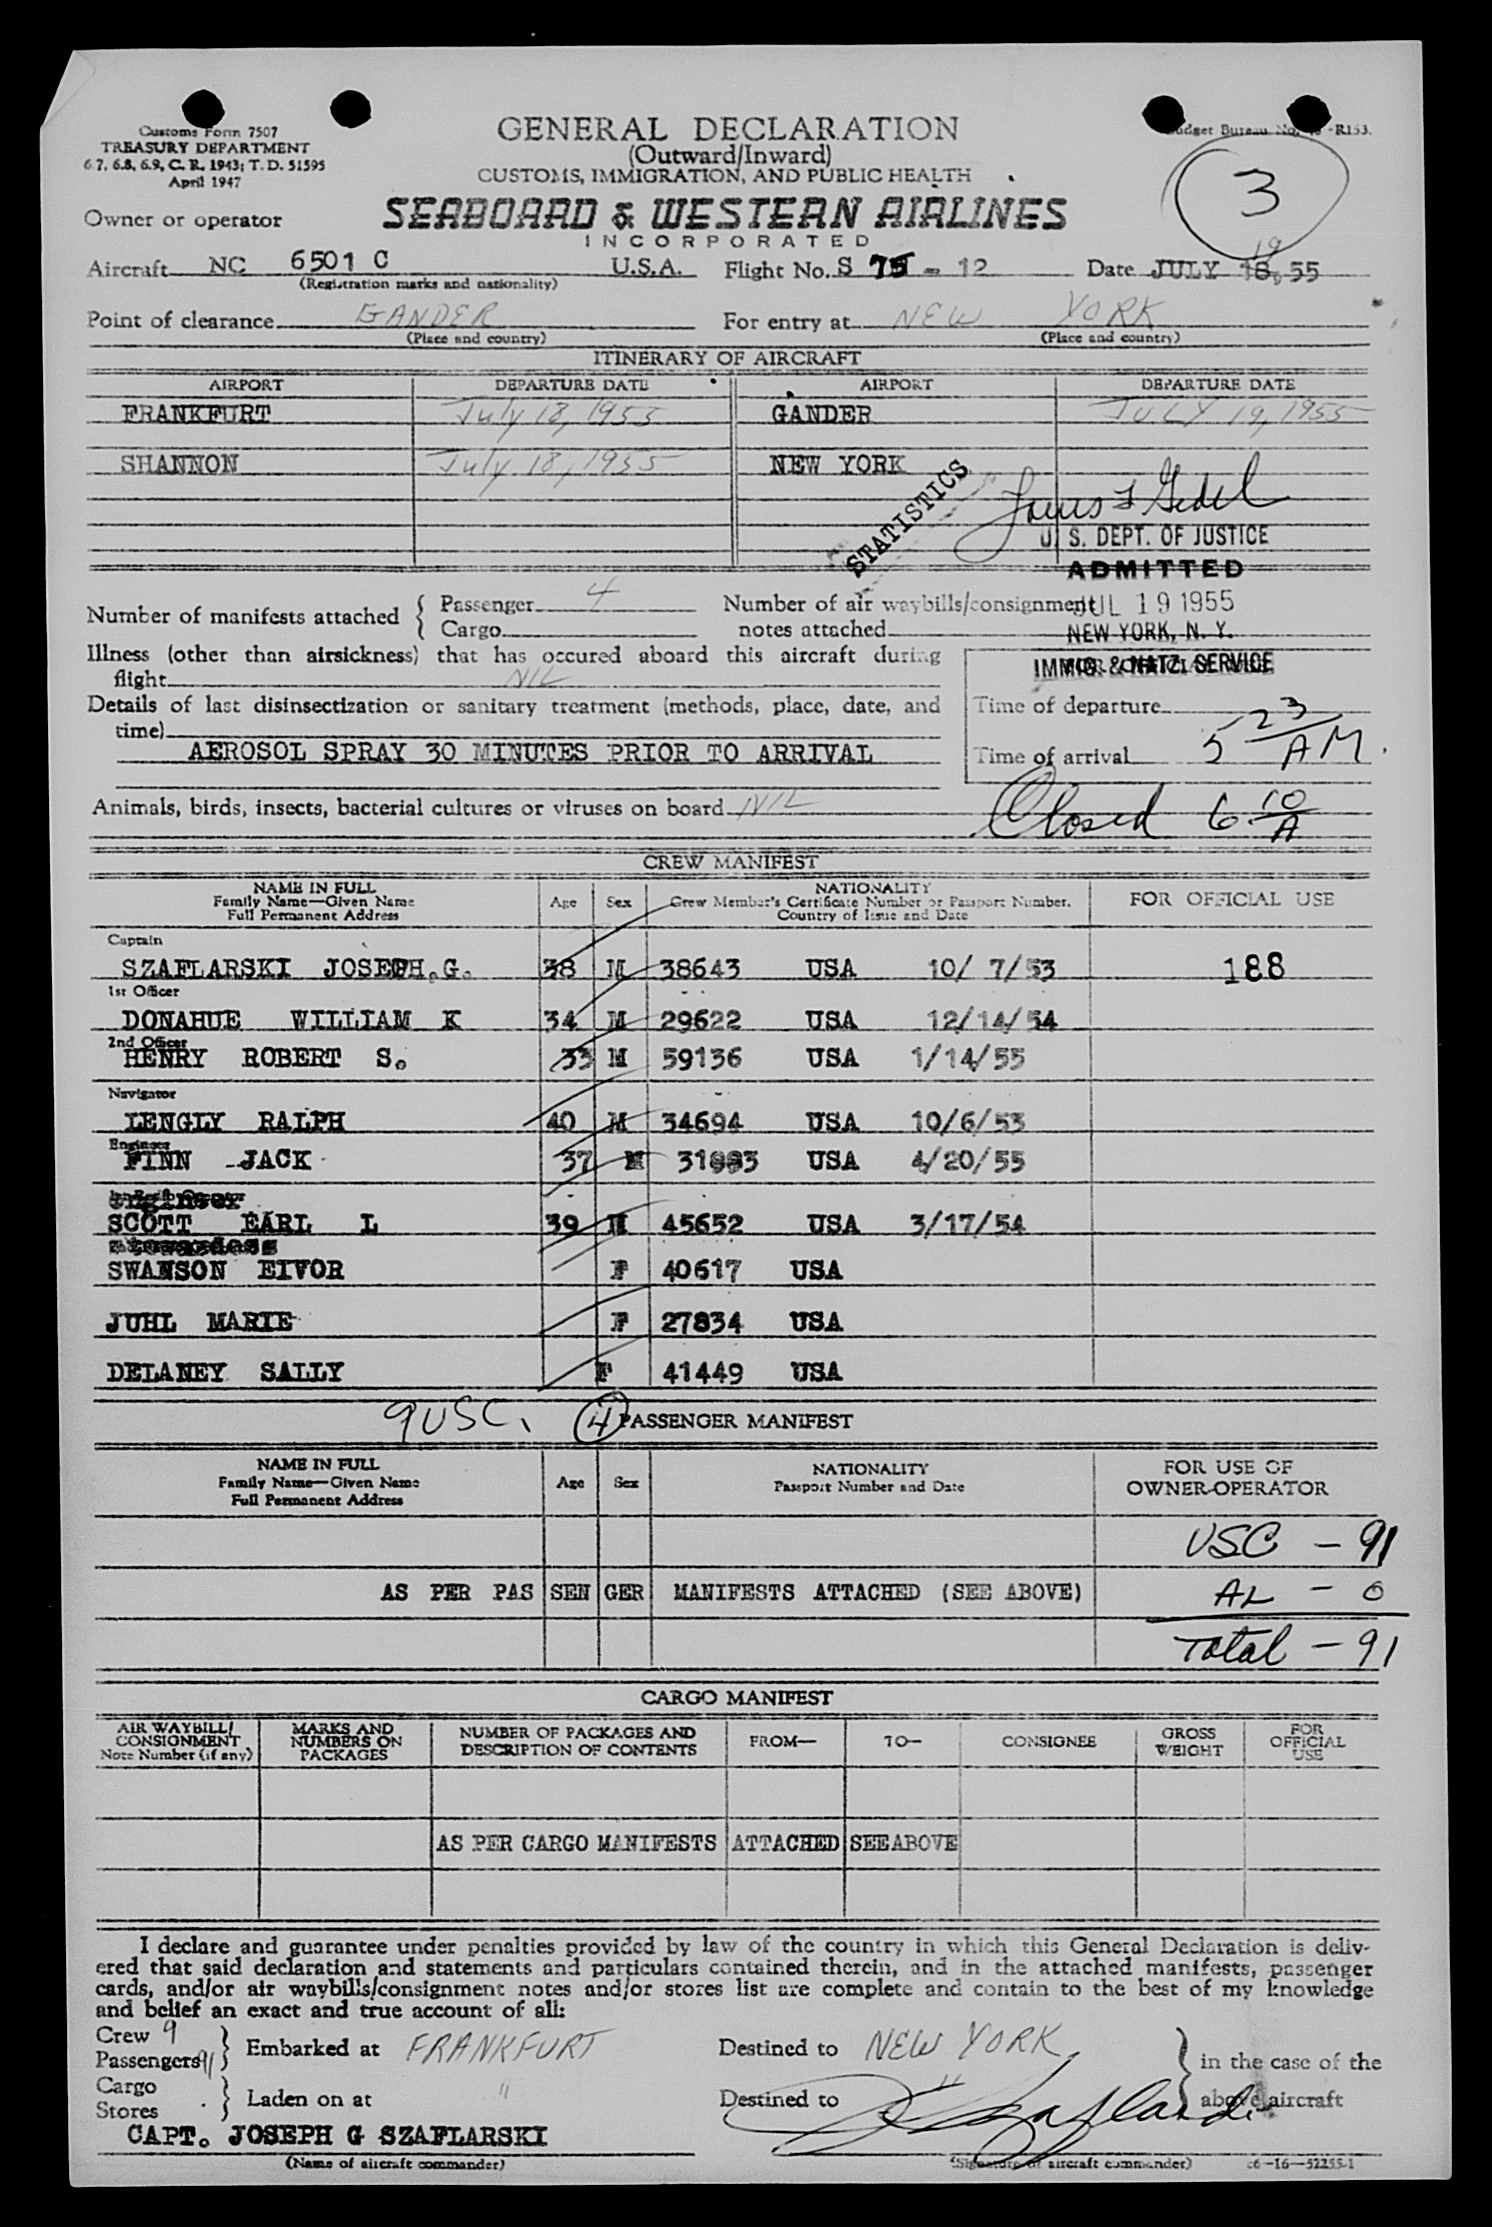 Customs Form 7507
TREASURY DEPARTMENT
6.7, 6.8, 6.9, C. R. 1943; T. D. 51595
April 1947
GENERAL DECLARATION
(Outward/Inward)
CUSTOMS, IMMIGRATION, AND PUBLIC HEALTH
Budget Bureau No. -R153.
3
Owner or operator
SEABOARD & WESTERN AIRLINES
INCORPORATED
Aircraft NC 6501 C U.S.A. Flight No. S 75 - 12 Date JULY 18, 55
19
(Registration marks and nationality)
Point of clearance GANDER For entry at NEW YORK
(Place and country) (Place and country)
ITINERARY OF AIRCRAFT
AIRPORT DEPARTURE DATE AIRPORT DEPARTURE DATE
FRANKFURT July 18, 1955 GANDER JULY 19, 1955
SHANNON July 18, 1955 NEW YORK
STATISTICS
U. S. DEPT. OF JUSTICE
ADMITTED
JUL 19 1955
NEW YORK, N. Y.
IMMIG. & NATZ. SERVICE
Number of manifests attached { Passenger 4 Number of air waybills/consignment
Cargo notes attached
Illness (other than airsickness) that has occured aboard this aircraft during
flight NIL
Details of last disinsectization or sanitary treatment (methods, place, date, and
time)
AEROSOL SPRAY 30 MINUTES PRIOR TO ARRIVAL
Time of departure
Time of arrival 5 23 AM
Animals, birds, insects, bacterial cultures or viruses on board NIL
Closed 6 10 A
CREW MANIFEST
NAME IN FULL
Family Name—Given Name
Full Permanent Address
Age Sex
NATIONALITY
Crew Member's Certificate Number or Passport Number.
Country of Issue and Date
FOR OFFICIAL USE
Captain
SZAFLARSKI JOSEPH.G. 38 M 38643 USA 10/ 7/53 188
1st Officer
DONAHUE WILLIAM K 34 M 29622 USA 12/14/54
2nd Officer
HENRY ROBERT S. 33 M 59136 USA 1/14/55
Navigator
LENGLY RALPH 40 M 34694 USA 10/6/53
Engineer
FINN JACK 37 M 31883 USA 4/20/55
engineer
SCOTT EARL L 39 M 45652 USA 3/17/54
stewardess
SWANSON EIVOR F 40617 USA
JUHL MARIE F 27834 USA
DELANEY SALLY F 41449 USA
9 USC. 4 PASSENGER MANIFEST
NAME IN FULL
Family Name—Given Name
Full Permanent Address
Age Sex
NATIONALITY
Passport Number and Date
FOR USE OF
OWNER-OPERATOR
USC - 91
AS PER PAS SEN GER MANIFESTS ATTACHED (SEE ABOVE) AL - 0
Total - 91
CARGO MANIFEST
AIR WAYBILL/
CONSIGNMENT
Note Number (if any)
MARKS AND
NUMBERS ON
PACKAGES
NUMBER OF PACKAGES AND
DESCRIPTION OF CONTENTS
FROM— TO— CONSIGNEE
GROSS
WEIGHT
FOR
OFFICIAL
USE
AS PER CARGO MANIFESTS ATTACHED SEE ABOVE
I declare and guarantee under penalties provided by law of the country in which this General Declaration is deliv-
ered that said declaration and statements and particulars contained therein, and in the attached manifests, passenger
cards, and/or air waybills/consignment notes and/or stores list are complete and contain to the best of my knowledge
and belief an exact and true account of all:
Crew 9
Passengers 91 } Embarked at FRANKFURT Destined to NEW YORK } in the case of the
Cargo
Stores } Laden on at " Destined to " above aircraft
CAPT. JOSEPH G SZAFLARSKI J Szaflarski
(Name of aircraft commander) (Signature of aircraft commander) 16—52255-1